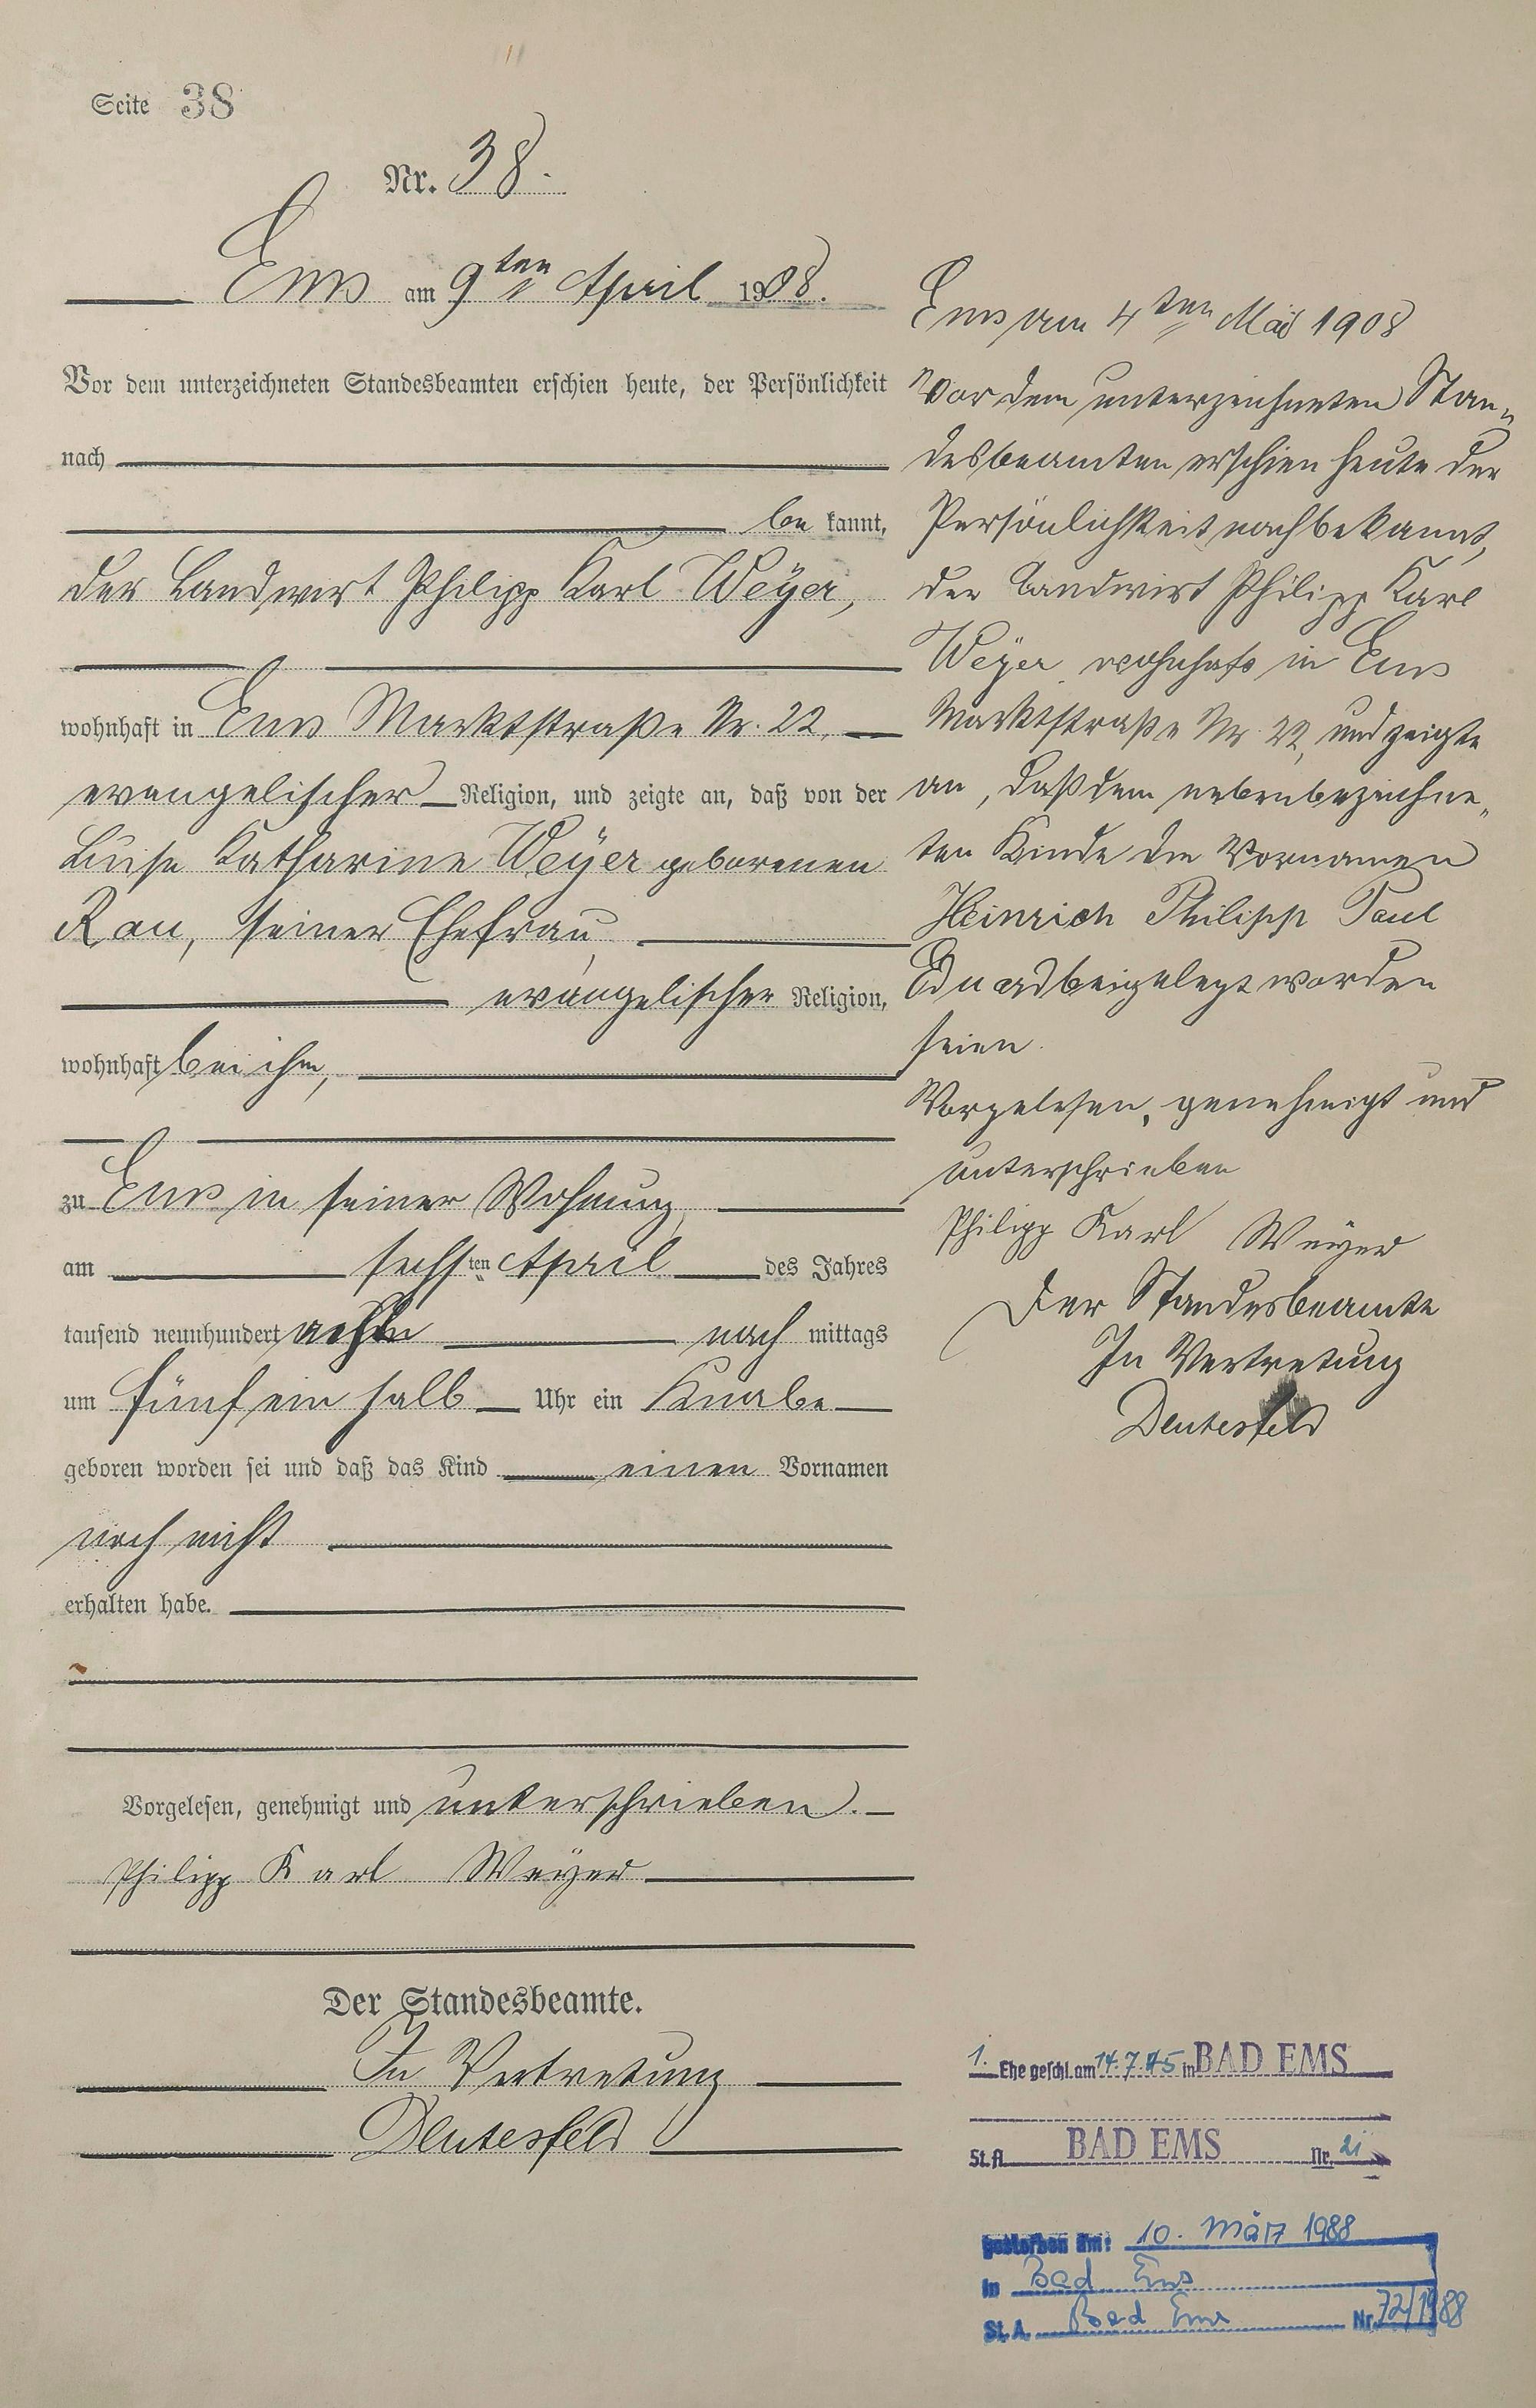 Seite 38
Nr. 38.
Ems am 9ten April 1908.
Vor dem unterzeichneten Standesbeamten erschien heute, der Persönlichkeit
nach
be kannt,
der Landwirt Philipp Karl Weÿer,
wohnhaft in Ems Marktstraße Nr. 22.
evangelischer Religion, und zeigte an, daß von der
Luise Katharine Weÿer geborenen
Rau, seiner Ehefrau,
evangelischer Religion,
wohnhaft bei ihm,
zu Ems in seiner Wohnung,
am sechsten April des Jahres
tausend neunhundert acht nach mittags
um fünf ein halb Uhr ein Knabe
geboren worden sei und daß das Kind einen Vornamen
noch nicht
erhalten habe.
Vorgelesen, genehmigt und unterschrieben.
Philipp Karl Weÿer
Der Standesbeamte.
In Vertretung
Deutesfeld
Ems am 4ten Mai 1908
Vor dem unterzeichneten Stan„
desbeamten erschien heute der
Persönlichkeit nach bekannt,
der Landwirt Philipp Karl
Weÿer, wohnhaft in Ems
Marktstraße Nr. 22, und zeigte
an, daß dem nebenbezeichne„
ten Kinde die Vornamen
Heinrich Philipp Paul
Eduard beigelegt worden
seien.
Vorgelesen, genehmigt und
unterschrieben
Philipp Karl Weÿer
Der Standesbeamte
In Vertretung
Deutesfeld
1. Ehe geschl. am 14.7.45 in BAD EMS
St.A. BAD EMS Nr. 21
gestorben am: 10. März 1988
in Bad Ems
St. A. Bad Ems Nr. 72/1988